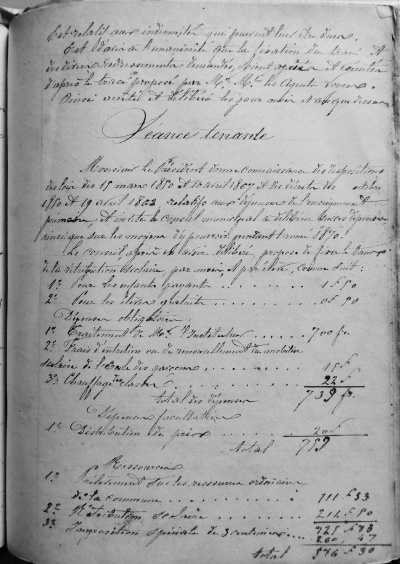 est relatif aux indemnités qui peuvent leur être dues.
Est d'avis à l'unanimité que la fixation du tracé et
des divers redressements demandés, soient opérés et exécutés
d'après le tracé proposé par M.M. les Agents Voyers.
Ainsi arrêté et délibéré les jour mois et an que dessus
Séance tenante
Monsieur le Président donne connaissance des dispositions
des lois des 15 mars 1850 et 10 avril 1867, et des décrets des octobre
1850 et 19 avril 1862 relatifs aux dépenses de l'enseignement
primaire, et invite le conseil municipal à délibérer sur ces dépenses
ainsi que sur les moyens d'y pourvoir pendant l'année 1870.
Le Conseil, après en avoir délibéré, propose de fixer le taux
de la rétribution scolaire par mois, et par élève, comme suit:
1º Pour les enfants payants . . . . . . . 1f 50
2º Pour les élèves gratuits . . . . . . . 0f 90
Dépenses obligatoires
1º Traitement de Mr l'Instituteur . . . . . 700 fr.
2º Frais d'entretien ou de renouvellement du mobilier
scolaire de l'école des garçons . . . . . . 15 f
3º Chauffage des classes . . . . . . . 22 f
total des dépenses 739 fr.
Dépenses facultatives
1º Distribution de prix . . . . . . . 20 f
total 759
Ressources
1º Prélèvement sur les ressources ordinaires
de la commune . . . . . . . 111 f 33
2º Rétribution scolaire . . . . . . . 214 f 50
3º Imposition spéciale de 3 centimes . . . .
total 576 f 30